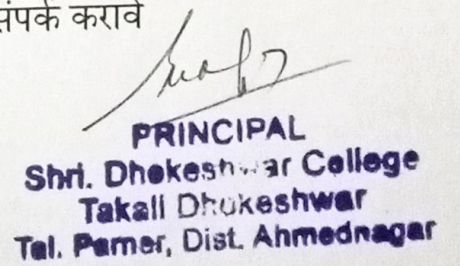 संपर्क करावे
PRINCIPAL
Shri. Dhokeshwar College
Takali Dhokeshwar
Tal. Parner, Dist. Ahmednagar